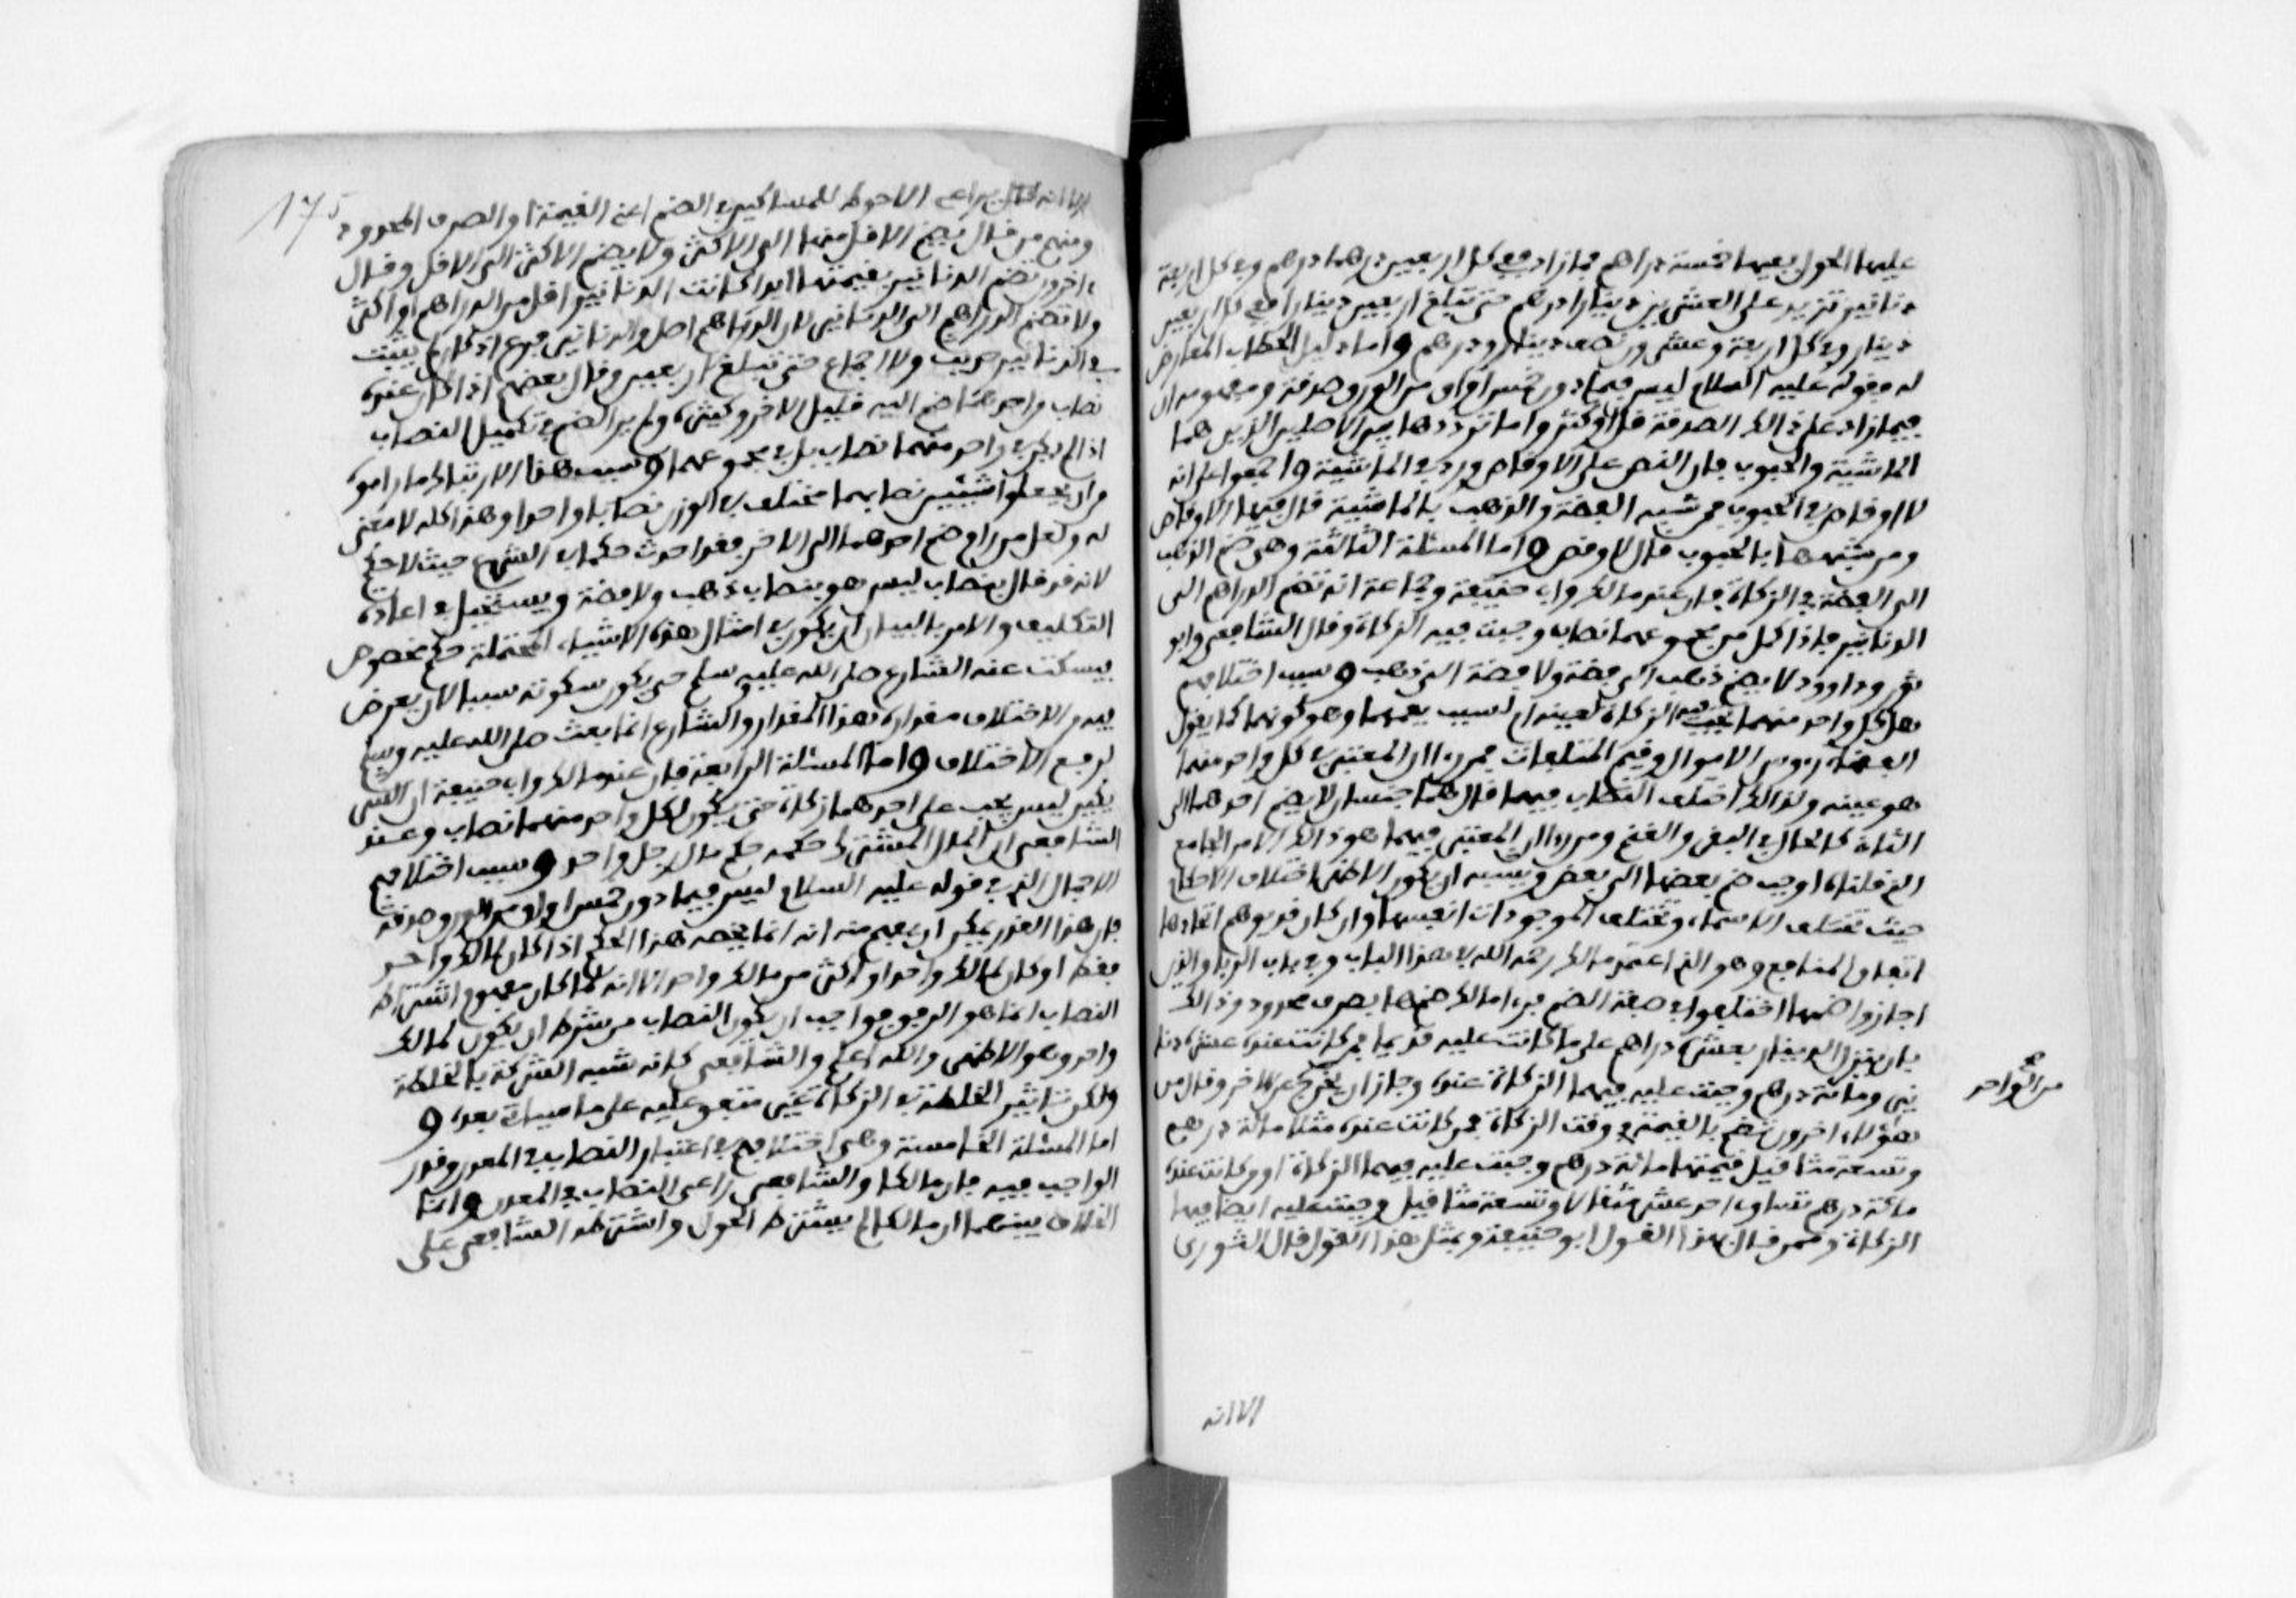 عليها الحول ففيها خمسة دراهم فما زاد ففي كل اربعين درهما درهم وفي كل اربعة
دنانير تزيد على العشرين دينارا درهم حتى تبلغ اربعين دينارا ففي كل اربعين
دينار وفي كل اربعة وعشرين نصف دينار ودرهم واما دليل الخطاب المعارض
له فقوله عليه السلام ليس فيما دون خمس اواق من الورق صدقة ومفهومه ان
فيما زاد على ذالك الصدقة قل او كثر واما ترددها بين الاصلين الذين هما
الماشية والحبوب فان النص على الاوقاص ورد في الماشية واجمعوا على انه
لا اوقاص في الحبوب فمن شبه الفضة والذهب بالماشية قال فيها الاوقاص
ومن شبهها بالحبوب قال لا وقص واما المسئلة الثالثة وهي ضم الذهب
الى الفضة في الزكاة فان عند مالك وابي حنيفة وجماعة انه تضم الدراهم الى
الدنانير فاذا كمل من مجموعهما نصاب وجبت فيه الزكاة وقال الشافعي وابو
ثور وداوود لا يضم ذهب الى فضة ولا فضة الى ذهب وسبب اختلافهم
هل كل واحد منهما تجب فيه الزكاة لعينه ام لسبب يعمهما وهو كونهما كما يقول
الفقهاء رءوس الاموال وقيم المتلفات فمن رءا ان المعتبر في كل واحد منهما
هو عينه ولذالك اختلف النصاب فيهما قال هما جنسان لا يضم احدهما الى
الثاني كالحال في البقر والغنم ومن رءا ان المعتبر فيهما هو ذالك الامر الجامع
الذي قلناه اوجب ضم بعضها الى بعض ويشبه ان يكون الاظهر اختلاف الاحكام
حيث تختلف الاسماء وتختلف الموجودات انفسها وان كان قد يوهم اتحادهما
اتفاق المنافع وهو الذي اعتمد مالك رحمه الله في هذا الباب وفي باب الربا والذين
اجازوا ضمهما اختلفوا في صفة الضم فرءا مالك ضمهما بصرف محدود وذالك
بان ينزل الدينار بعشرة دراهم على ما كانت عليه قديما فمن كانت عنده عشرة دنا
نير ومائة درهم وجبت عليه فيهما الزكاة عنده وجاز ان يخرج عن الاخر وقال من
من الواحد
هؤلاء اخرون تضم بالقيمة في وقت الزكاة فمن كانت عنده مثلا مائة درهم
وتسعة مثاقيل قيمتها مائة درهم وجبت عليه فيهما الزكاة او كانت عنده
مائة درهم تساوي احد عشر مثقالا وتسعة مثاقيل وجبت عليه ايضا فيهما
الزكاة وممن قال بهذا القول ابو حنيفة وبمثل هذا القول قال الثوري
الا انه
175
الا انه قال يراعى الاحوط للمساكين في الضم اعني القيمة او الصرف المحدود
ومنهم من قال يضم الاقل منها الى الاكثر ولا يضم الاكثر الى الاقل وقال
اخرون تضم الدنانير بقيمتها ابدا كانت الدنانير اقل من الدراهم او اكثر
ولا تضم الدراهم الى الدنانير لان الدراهم اصل والدنانير فرع اذ كان لم يثبت
في الدنانير حديث ولا اجماع حتى تبلغ اربعين وقال بعضهم اذا كان عنده
نصاب واحد منها ضم اليه قليل الاخر وكثيره ولم ير الضم في تكميل النصاب
اذا لم يكن في واحد منهما نصاب بل في مجموعهما وسبب هذا الارتباك ما راموه
من ان يجعلوا شيئين نصابهما مختلف في الوزن نصابا واحدا وهذا كله لا معنى
له ولعل من رام ضم احدهما الى الاخر فقد احدث حكما في الشرع حيث لا حكم
لانه قد قال بنصاب ليس هو بنصاب ذهب ولا فضة ويستحيل في عادة
التكليف والامر بالبيان ان يكون في امثال هذه الاشياء المحتملة حكم مخصوص
فيسكت عنه الشارع صلى الله عليه وسلم حتى يكون سكوته سببا لان يعرض
فيه من الاختلاف مقداره هذا المقدار والشارع انما بعث صلى الله عليه وسلم
لرفع الاختلاف واما المسئلة الرابعة فان عند مالك وابي حنيفة ان الشر
يكين ليس يجب على احدهما زكاة حتى يكون لكل واحد منهما نصاب وعند
الشافعي ان المال المشترك حكمه حكم مال رجل واحد وسبب اختلافهم
الاجمال الذي في قوله عليه السلام ليس فيما دون خمس اواق من الورق صدقة
فان هذا القدر يمكن ان يفهم منه انه انما يخصه هذا الحكم اذا كان لمالك واحد
فقط او كان لمالك واحد او اكثر من مالك واحد الا انه لما كان مفهوم اشتراط
النصاب انما هو الرفق فواجب ان يكون النصاب من شرطه ان يكون لمالك
واحد وهو الاظهر والله اعلم والشافعي كانه شبه الشركة بالخلطة
ولكن تاثير الخلطة في الزكاة غير متفق عليه على ما سياتي بعد و
اما المسئلة الخامسة وهي اختلافهم في اعتبار النصاب في المعدن وقدر
الواجب فيه فان مالكا والشافعي راعى النصاب في المعدن وانما
الخلاف بينهما ان مالكا لم يشترط الحول واشترطه الشافعي على